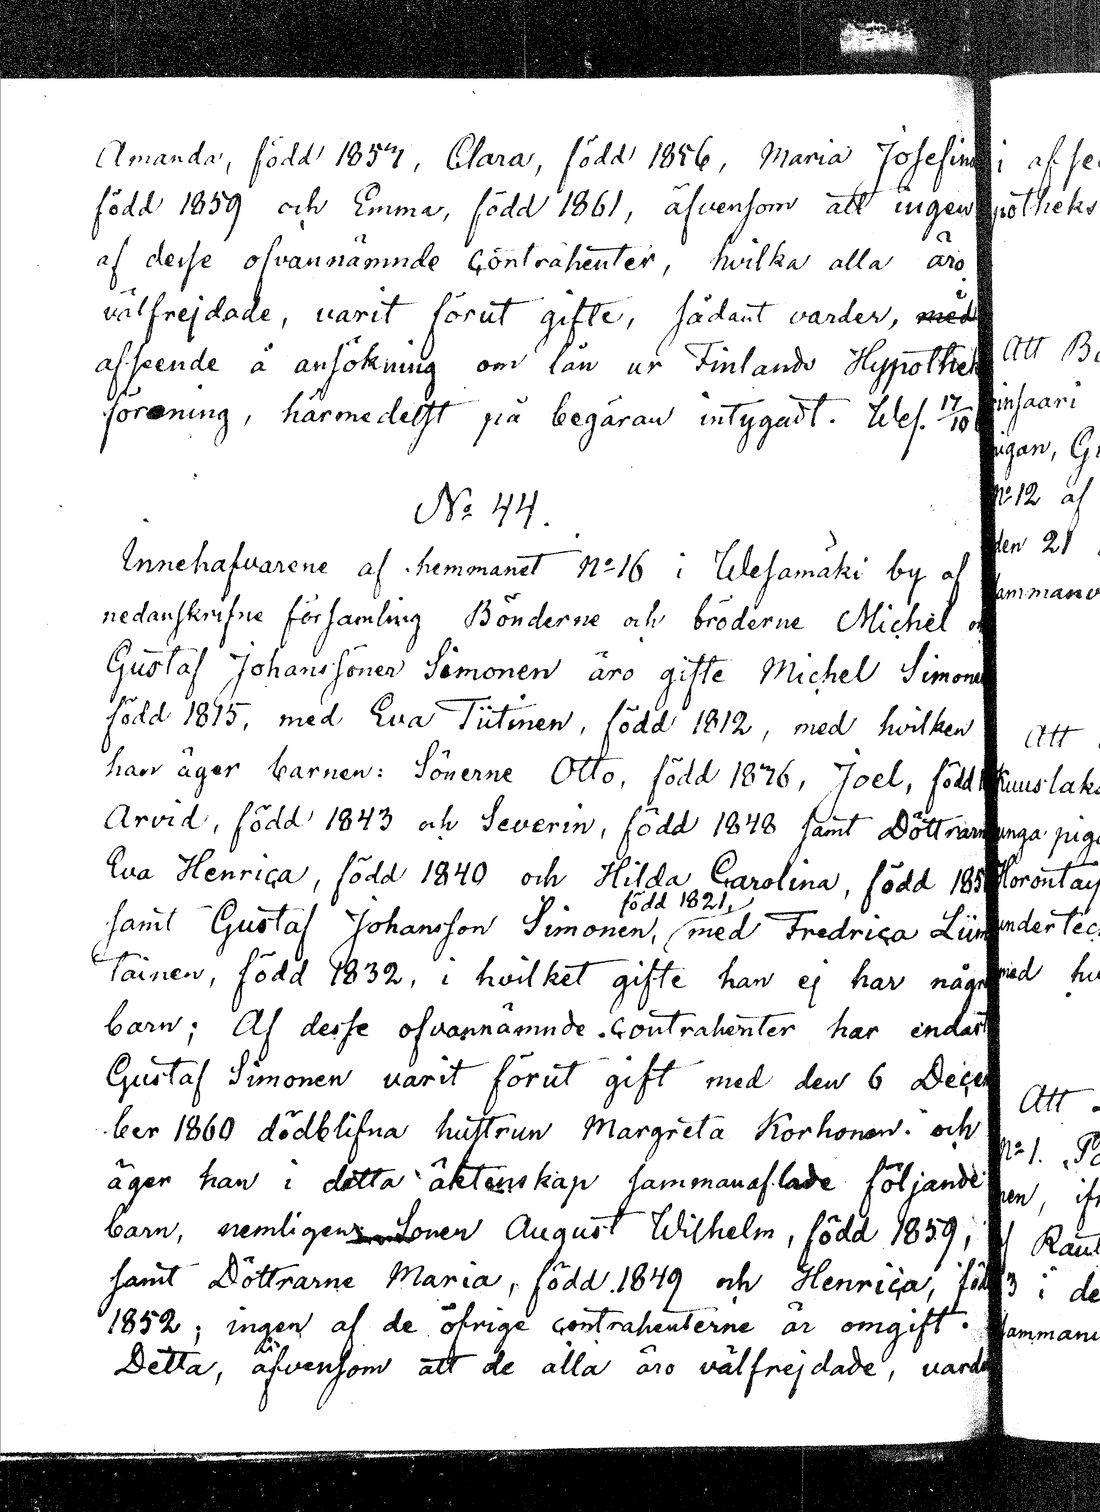 Amanda, född 1854, Clara, född 1856, Maria Josefin
född 1859 och Emma, född 1861, äfvensom att ingen
af desse ofvannämnde contrahenter, hvilka alla äro
välfrejdade, varit förut gifte, sådant varder, med i
afseende å ansökning om lån ur Finlands Hypothek
förening, härmedelst på begäran intygadt. Wes. 17/10
No 44.
Innehafvarene af hemmanet No 16 i Wesamäki by af
nedanskrifne församling Bönderne och bröderne Michel
Gustaf Johanssöner Simonen äro gifte Michel Simone
född 1815, med Eva Tiitinen, född 1812, med hvilken
han äger barnen: Sönerne Otto, född 1836, Joel, född
Arvid, född 1843 och Severin, född 1848 samt Döttrarn
Eva Henrica, född 1840 och Hilda Carolina, född 185
född 1821,
samt Gustaf Johansson Simonen, med Fredrica Liim
tainen, född 1832, i hvilket gifte han ej har någr
barn; Af desse ofvannämnde contrahenter har endast
Gustaf Simonen varit förut gift med den 6 Decem
ber 1860 dödblifna hustrun Margreta Korhonen och
äger han i detta äktenskap sammanaflade följande
barn, nemligen Sonen August Wilhelm, född 1859,
samt Döttrarne Maria, född 1849 och Henrica, föd
1852; ingen af de öfrige contrahenterne är omgift.
Detta, äfvensom att de alla äro välfrejdade, varde
i afse
potheks
Att B
insaari
igan, G
No 12 af
den 21
ammanv
Att
Kuuslak
unga pig
Horontay
undertec
med hv
Att
No 1.
nen, if
Raut
3 i de
samman